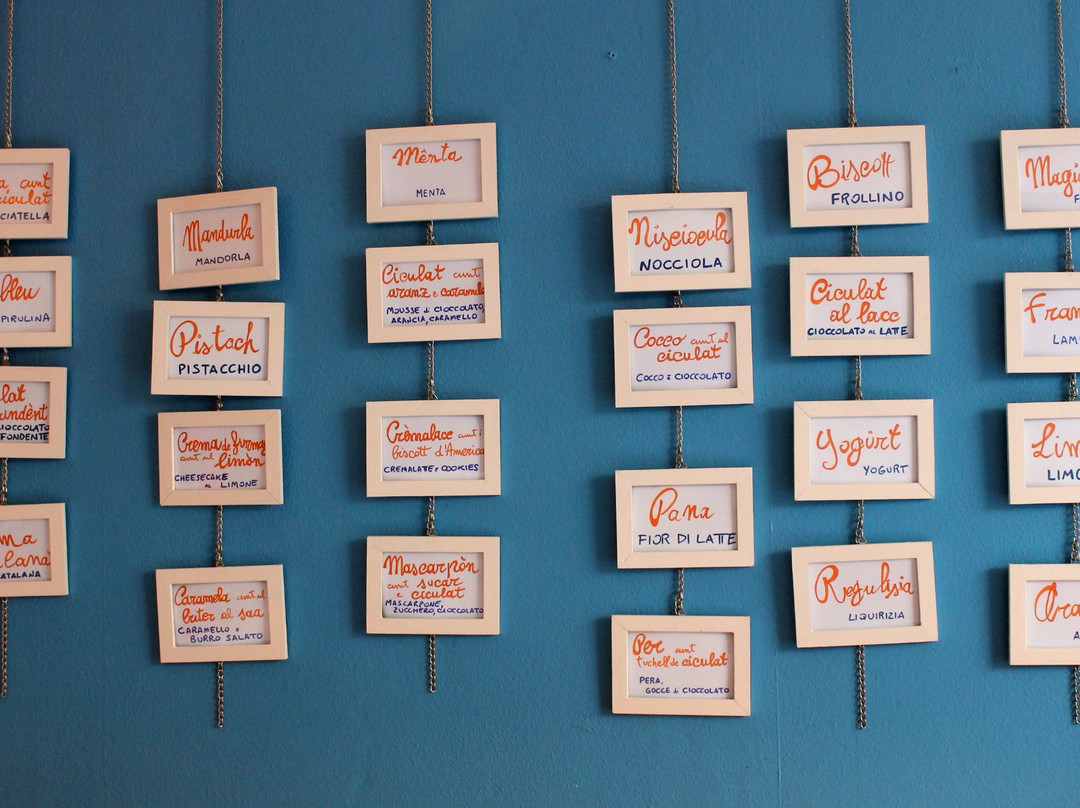 a cunt
ciculat
CIATELLA
bleu
SPIRULINA
lat
fundènt
CIOCCOLATO
FONDENTE
ma
alana
ATALANA
Mandurla
MANDORLA
Pistach
PISTACCHIO
Crema de furmag
cunt sul limòn
CHEESECAKE
AL LIMONE
Caramela cunt sul
buter al saa
CARAMELLO E
BURRO SALATO
Mènta
MENTA
Ciculat cunt
aranz e caramela
MOUSSE di CIOCCOLATO,
ARANCIA, CARAMELLO
Crèmalace cunt i
biscott d'America
CREMALATE E COOKIES
Mascarpòn
cunt sücar
e ciculat
MASCARPONE,
ZUCCHERO, CIOCCOLATO
Nisciocula
NOCCIOLA
Cocco cunt sul
ciculat
COCCO E CIOCCOLATO
Pana
FIOR DI LATTE
Per cunt
tuchell de ciculat
PERA,
GOCCE di CIOCCOLATO
Biscott
FROLLINO
Ciculat
al lacc
CIOCCOLATO AL LATTE
Yogürt
YOGURT
Regulisia
LIQUIRIZIA
Magi
F
Fram
LAM
Lim
LIMO
A